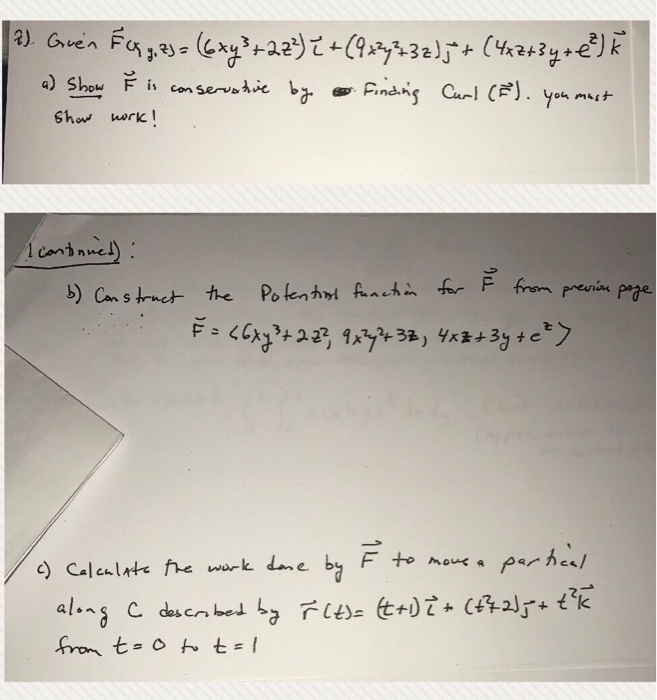 2). Given F⃗(x, y, z) = (6xy³+2z²) i⃗ + (9x²y²+3z) j⃗ + (4xz+3y+e^z) k⃗
a) Show F⃗ is conservative by Finding Curl (F⃗). you must
Show work!
1 continued) :
b) Construct the Potential function for F⃗ from previous page
F⃗ = <6xy³+2z², 9x²y²+3z, 4xz+3y+e^z>
c) Calculate the work done by F⃗ to move a partical
along C described by r⃗(t)= (t+1) i⃗ + (t²+2) j⃗ + t² k⃗
from t=0 to t=1